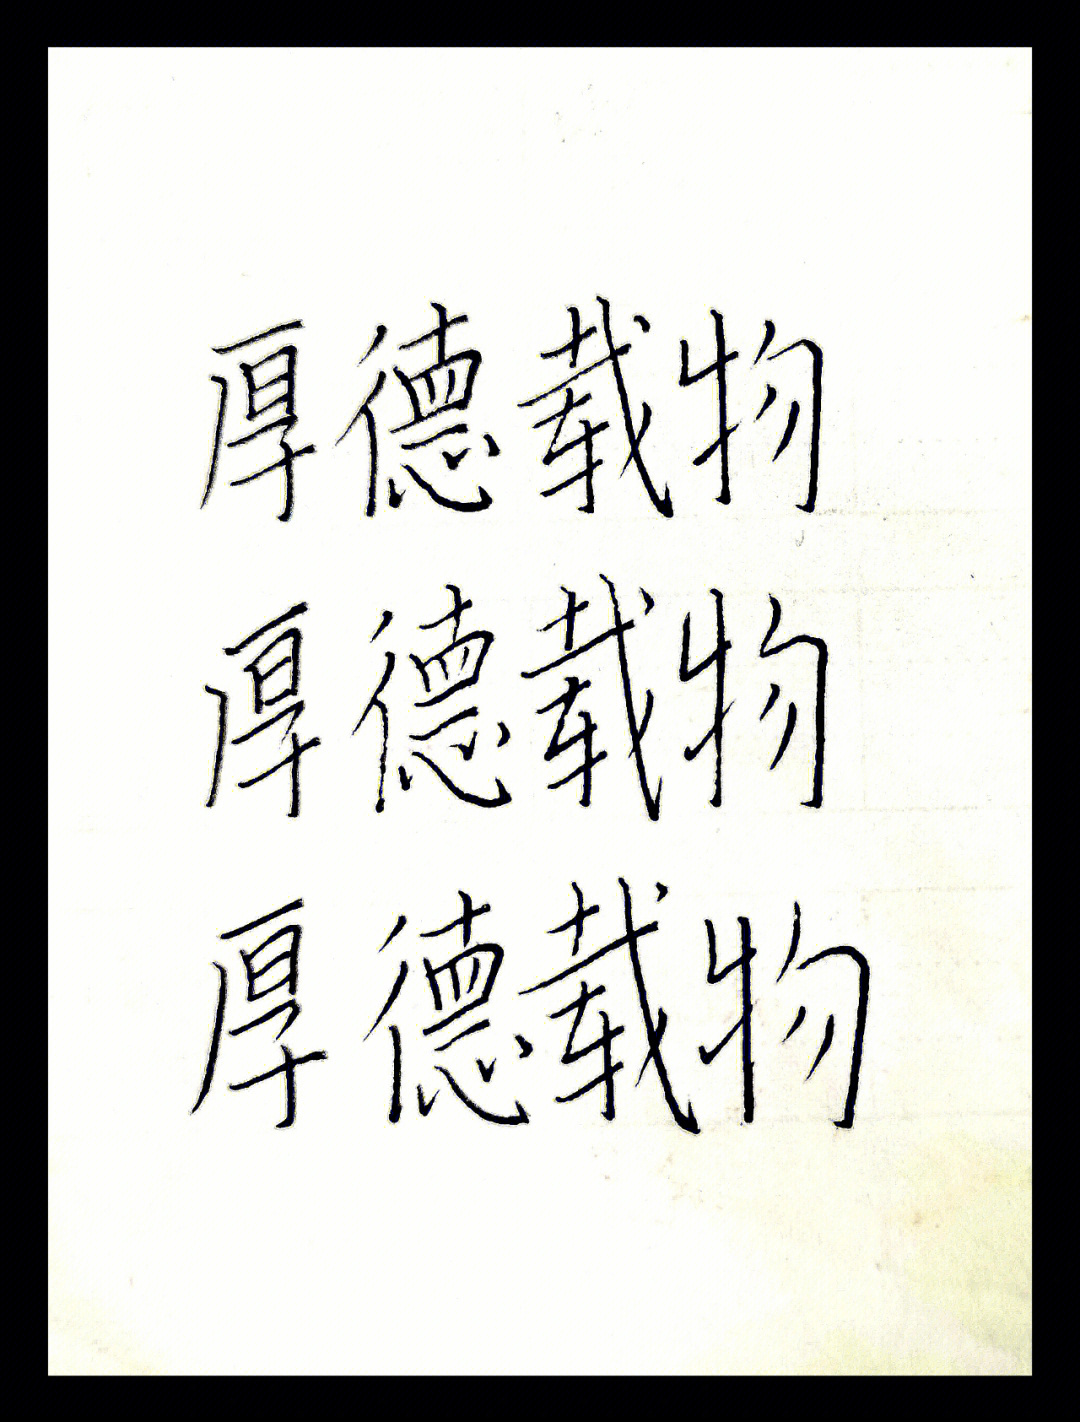 厚德载物
厚德载物
厚德载物